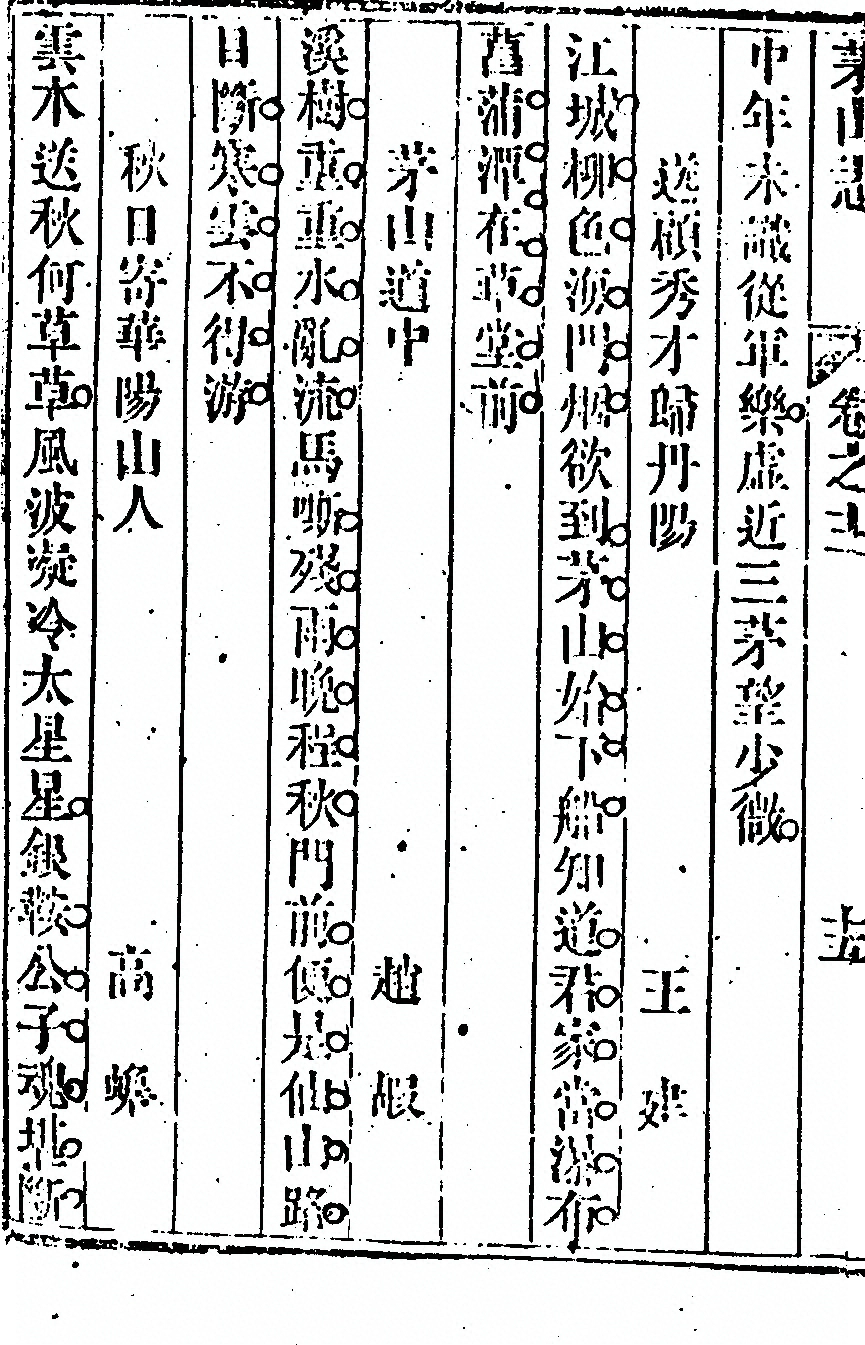 茅山志 卷之
中年未識從軍樂虛近三茅望少微
送顧秀才歸丹陽 王建
江城柳色海門烟欲到茅山始下船知道君家當瀑布
菖蒲潭在草堂前
茅山道中 趙嘏
溪樹重重水亂流馬嘶殘雨晚程秋門前便是仙山路
目斷寒雲不得游
秋日寄華陽山人 高蟾
雲水送秋何草草風波凝冷太星星銀鞍公子魂堪斷